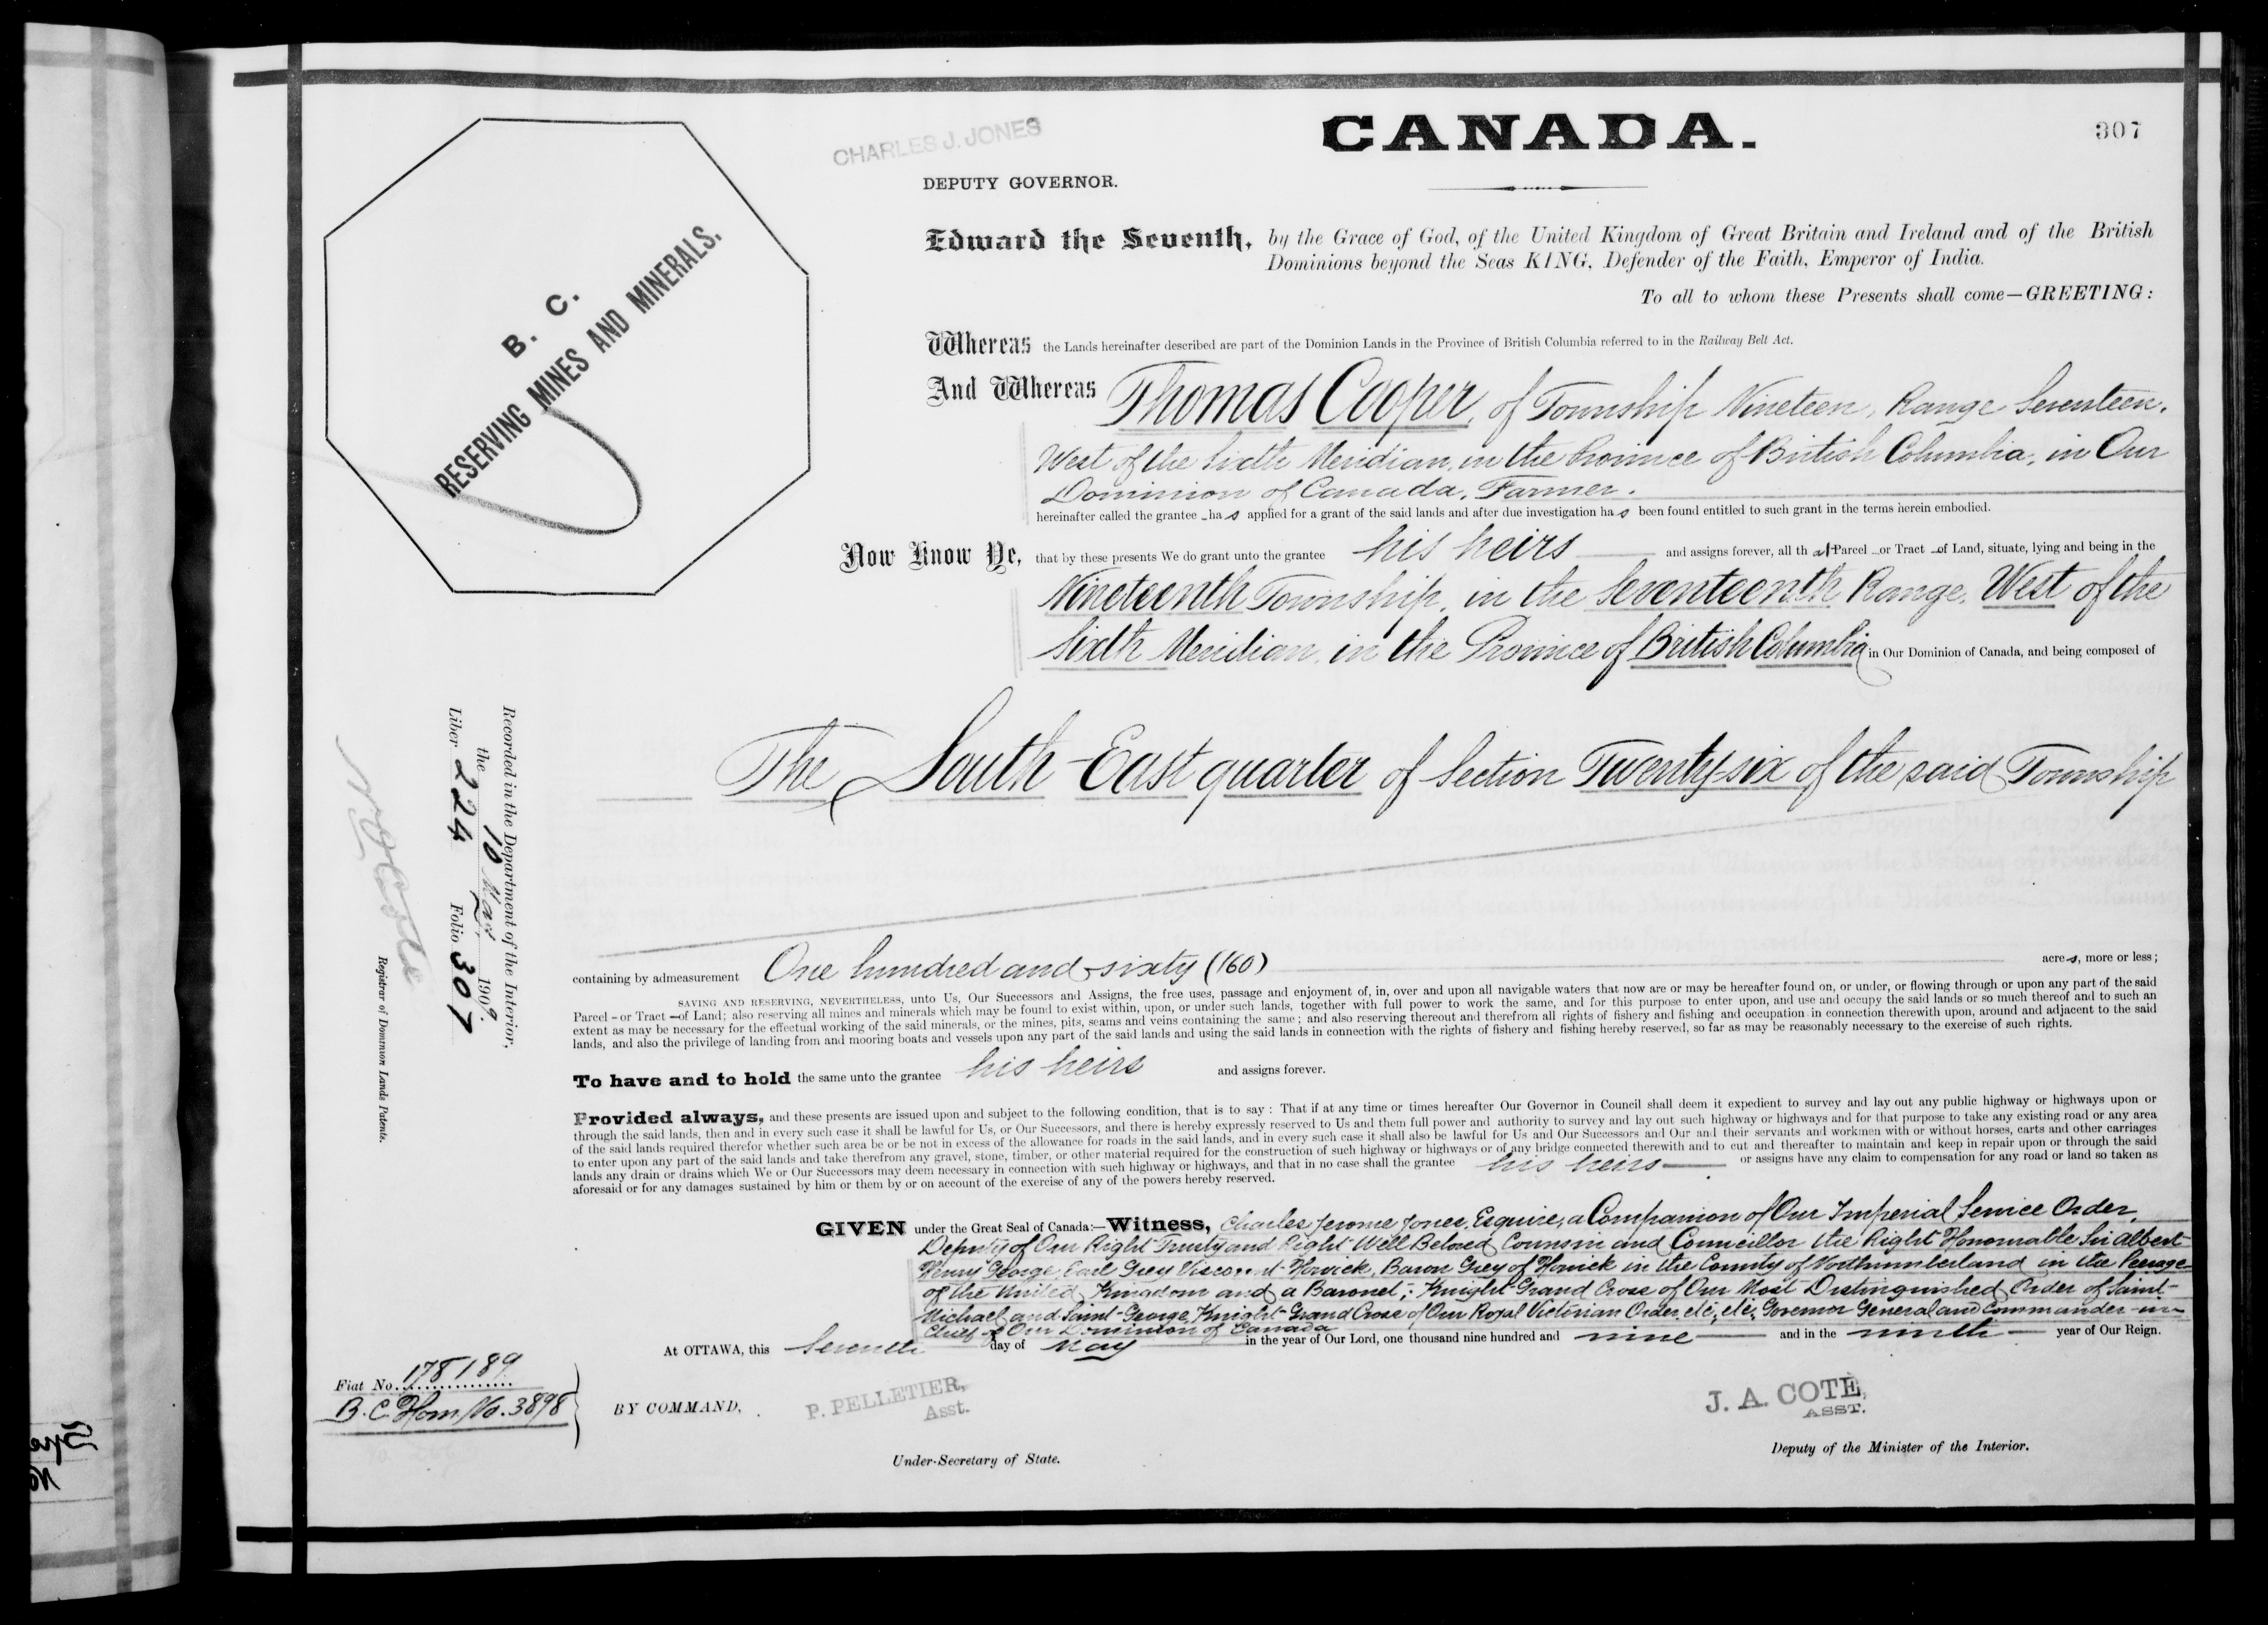 CANADA.
307
CHARLES J. JONES
DEPUTY GOVERNOR.
B. C.
RESERVING MINES AND MINERALS.
Edward the Seventh, by the Grace of God, of the United Kingdom of Great Britain and Ireland and of the British
Dominions beyond the Seas KING, Defender of the Faith, Emperor of India.
To all to whom these Presents shall come—GREETING:
Whereas the Lands hereinafter described are part of the Dominion Lands in the Province of British Columbia referred to in the Railway Belt Act.
And Whereas Thomas Cooper, of Township Nineteen, Range Seventeen,
West of the Sixth Meridian, in the Province of British Columbia, in Our
Dominion of Canada, Farmer.
hereinafter called the grantee has applied for a grant of the said lands and after due investigation has been found entitled to such grant in the terms herein embodied.
Now Know Ye, that by these presents We do grant unto the grantee his heirs and assigns forever, all that Parcel or Tract of Land, situate, lying and being in the
Nineteenth Township, in the Seventeenth Range, West of the
Sixth Meridian, in the Province of British Columbia in Our Dominion of Canada, and being composed of
The South East quarter of Section Twenty-six of the said Township
containing by admeasurement One hundred and sixty (160) acres, more or less;
SAVING AND RESERVING, NEVERTHELESS, unto Us, Our Successors and Assigns, the free uses, passage and enjoyment of, in, over and upon all navigable waters that now are or may be hereafter found on, or under, or flowing through or upon any part of the said
Parcel - or Tract - of Land; also reserving all mines and minerals which may be found to exist within, upon, or under such lands, together with full power to work the same, and for this purpose to enter upon, and use and occupy the said lands or so much thereof and to such an
extent as may be necessary for the effectual working of the said minerals, or the mines, pits, seams and veins containing the same; and also reserving thereout and therefrom all rights of fishery and fishing and occupation in connection therewith upon, around and adjacent to the said
lands, and also the privilege of landing from and mooring boats and vessels upon any part of the said lands and using the said lands in connection with the rights of fishery and fishing hereby reserved, so far as may be reasonably necessary to the exercise of such rights.
To have and to hold the same unto the grantee his heirs and assigns forever.
Provided always, and these presents are issued upon and subject to the following condition, that is to say: That if at any time or times hereafter Our Governor in Council shall deem it expedient to survey and lay out any public highway or highways upon or
through the said lands, then and in every such case it shall be lawful for Us, or Our Successors, and there is hereby expressly reserved to Us and them full power and authority to survey and lay out such highway or highways and for that purpose to take any existing road or any area
of the said lands required therefor whether such area be or be not in excess of the allowance for roads in the said lands, and in every such case it shall also be lawful for Us and Our Successors and Our and their servants and workmen with or without horses, carts and other carriages
to enter upon any part of the said lands and take therefrom any gravel, stone, timber, or other material required for the construction of such highway or highways or of any bridge connected therewith and to cut and thereafter to maintain and keep in repair upon or through the said
lands any drain or drains which We or Our Successors may deem necessary in connection with such highway or highways, and that in no case shall the grantee his heirs or assigns have any claim to compensation for any road or land so taken as
aforesaid or for any damages sustained by him or them by or on account of the exercise of any of the powers hereby reserved.
GIVEN under the Great Seal of Canada:—Witness, Charles Jerome Jones, Esquire, a Companion of Our Imperial Service Order,
Deputy of Our Right Trusty and Right Well Beloved Cousin and Councillor the Right Honourable Sir Albert
Henry George, Earl Grey, Viscount Howick, Baron Grey of Howick in the County of Northumberland in the Peerage
of the United Kingdom and a Baronet; Knight Grand Cross of Our Most Distinguished Order of Saint
Michael and Saint George, Knight Grand Cross of Our Royal Victorian Order, etc, etc, Governor General and Commander in
Chief of Our Dominion of Canada
At OTTAWA, this Seventh day of May in the year of Our Lord, one thousand nine hundred and nine and in the ninth year of Our Reign.
Fiat No. 178189
B. C. Hom. No. 3898
BY COMMAND,
P. PELLETIER,
Asst.
Under-Secretary of State.
J. A. COTE,
ASST.
Deputy of the Minister of the Interior.
Recorded in the Department of the Interior,
the 10 May 1909.
Liber 224 Folio 307
Registrar of Dominion Lands Patents.